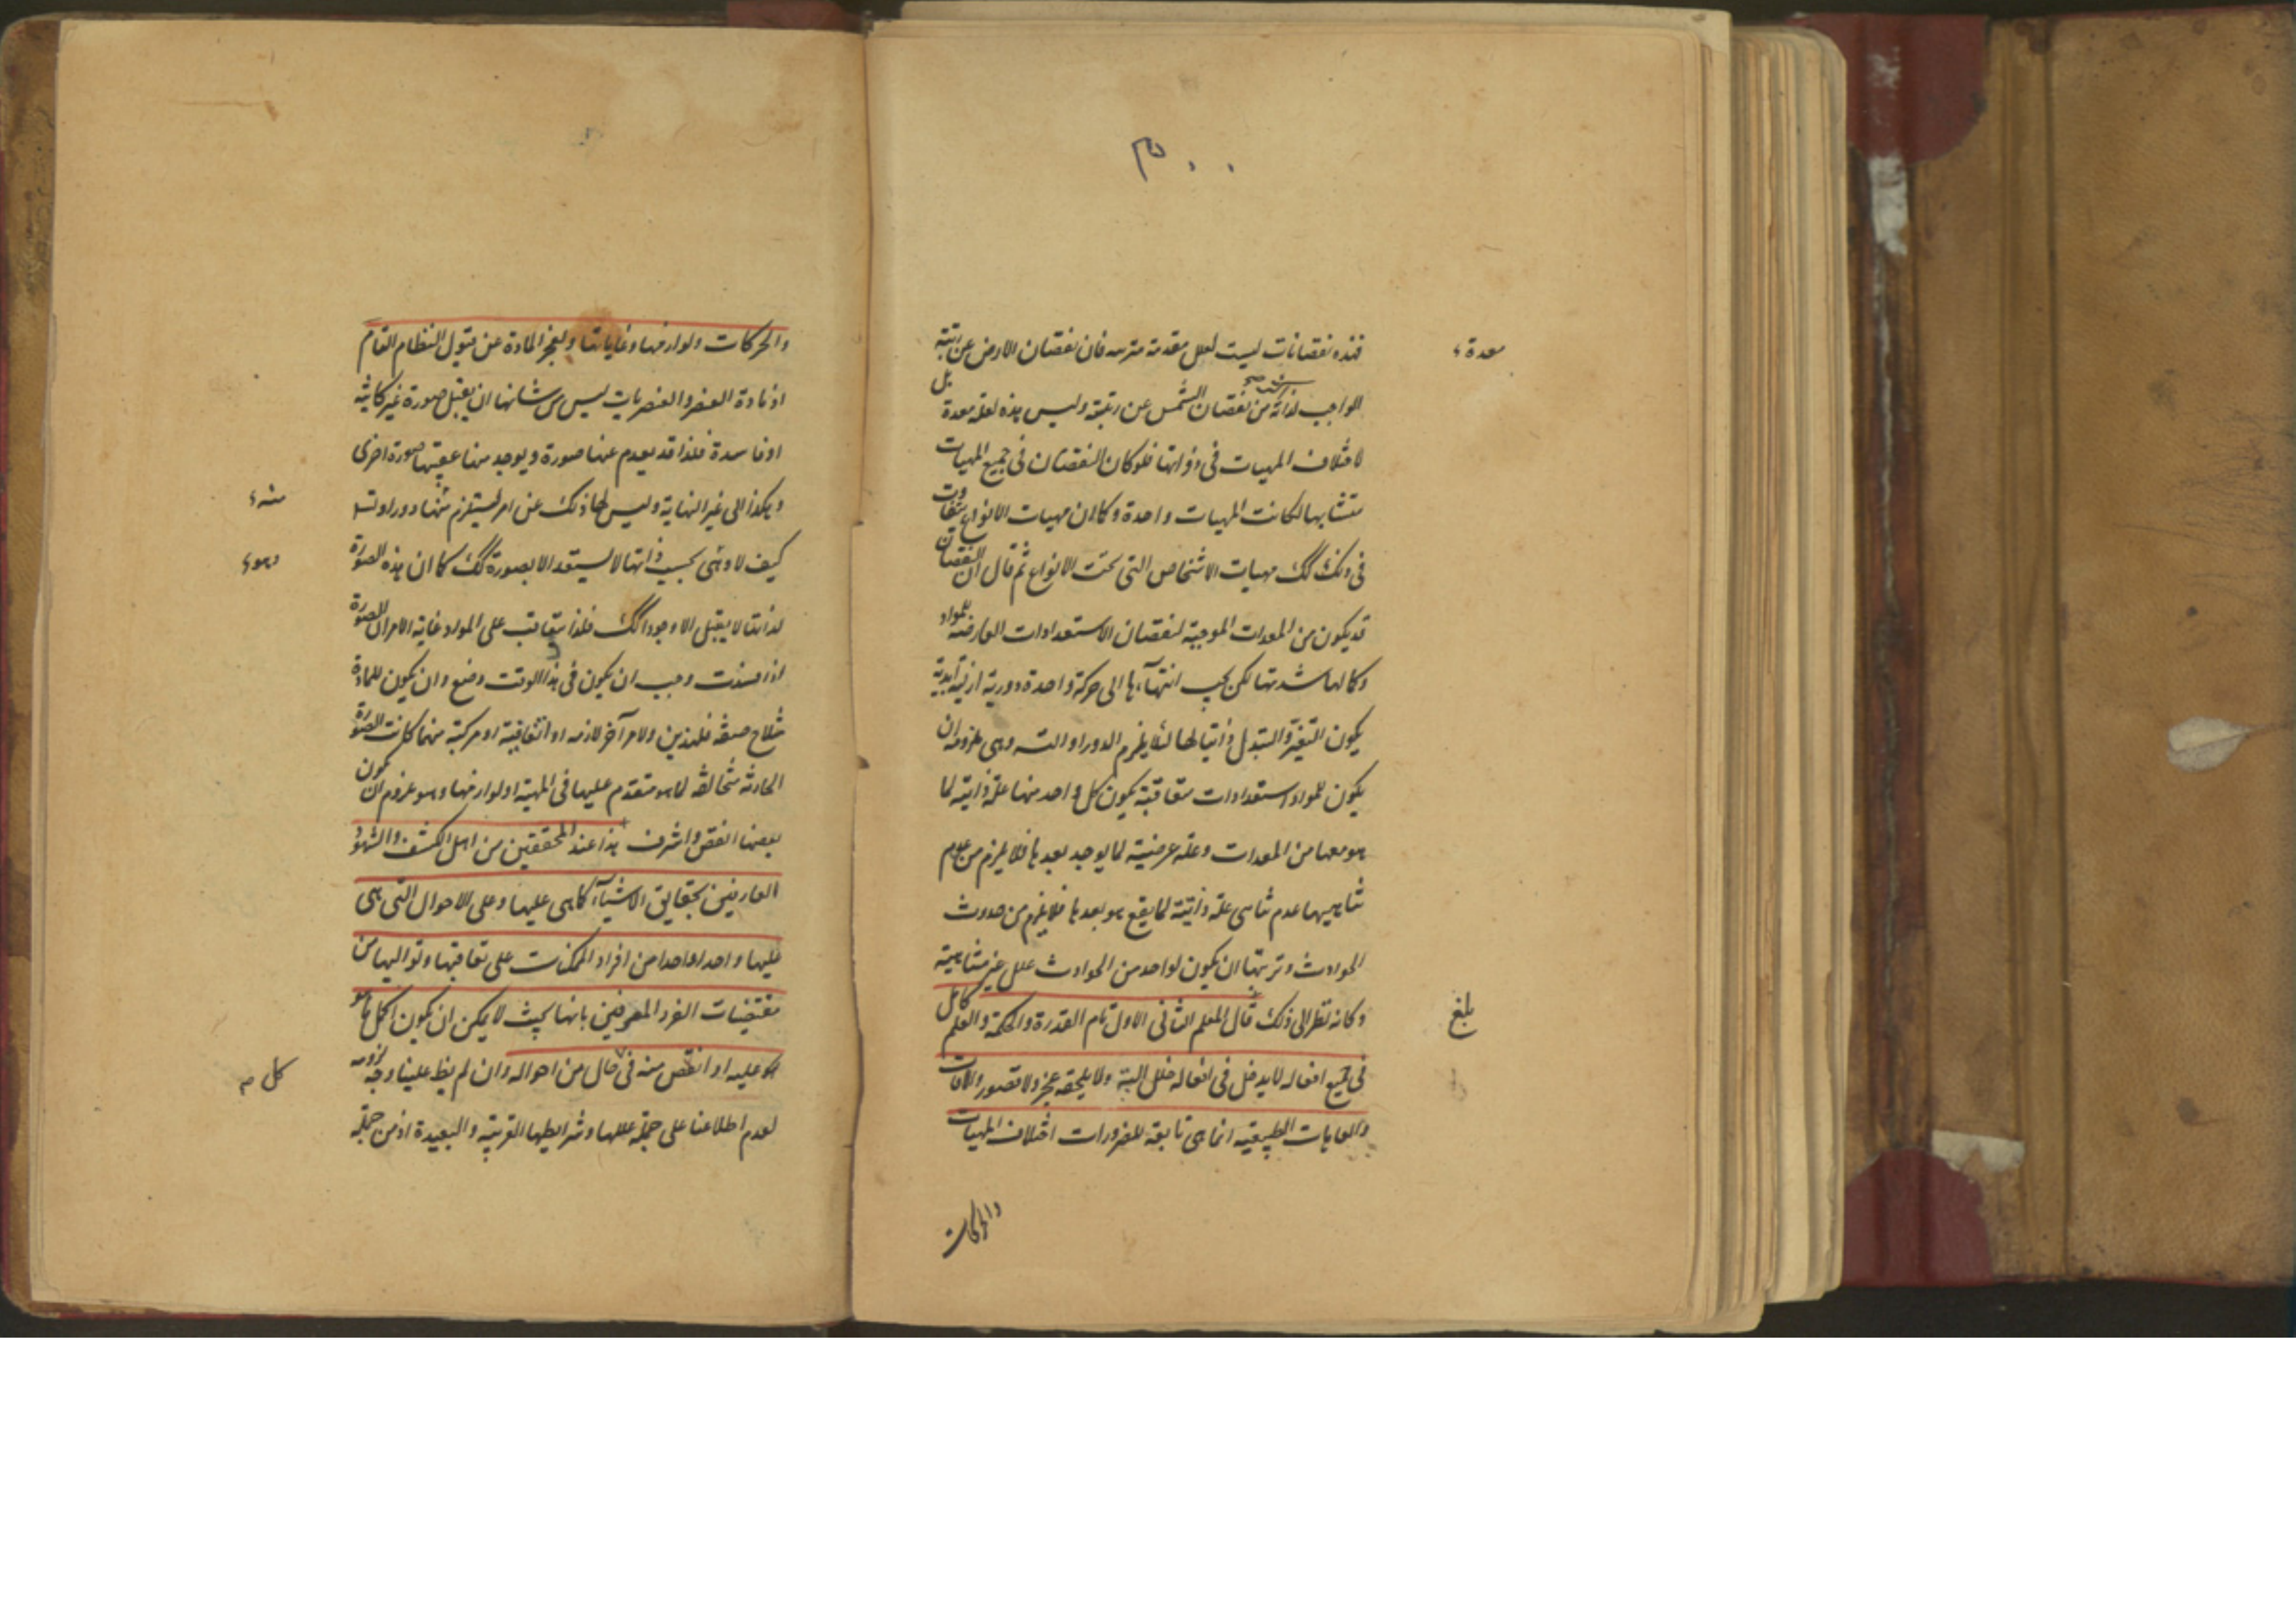 فهذه نقصانات ليست لعلل معدمة مترتبه فان نقصان الارض عن رتبة
الواجب لذاته اشد من نقصان الشمس عن رتبته وليس هذه لعلة معدة بل
لاختلاف المهيات فى ذواتها فلو كان النقصان فى جميع المهيات
متشابها لكانت المهيات واحدة وكما ان مهيات الانواع متفاوت
فى ذلك كك مهيات الاشخاص التى تحت الانواع ثم قال ان النقصان
قد يكون من المعدات الموجبة لنقصان الاستعدادات العارضه للمواد
وكمالها شدتها لكن يجب انتهآءها الى حركة واحدة دورية ازلية ابدية
يكون التغير والتبدل ذاتيا لها لئلا يلزم الدور او التسه وهى ملزومة ان
يكون للمواد استعدادات متعاقبة يكون كل واحد منها علة ذاتية لما
هو معها من المعدات وعلة عرضية لما يوجد بعدها فلا يلزم من عدم
تناهيها عدم تناهى علة ذاتية لما يقع هو بعدها فلا يلزم من حدوث
الحوادث وترتبها ان يكون لواحد من الحوادث علل غير متناهية
وكانه نظر الى ذلك قال المعلم الثانى الاول تام القدرة والحكمة والعلم كامل
فى جميع افعاله لا يدخل فى افعاله خلل البتة ولا يلحقه عجز ولا قصور والافات
والعاهات الطبيعية انما هى تابعة للضرورات اختلاف المهيات
والحركات
معدة
بلغ
والحركات ولوازمها وغاياتها ولعجز المادة عن قبول النظام التام
اذ مادة العنصر والعنصريات ليس من شانها ان يقبل صورة غير كاينة
او فاسدة فلذا قد يعدم عنها صورة ويوجد منها عقيبها صورة اخرى
وهكذا الى غير النهاية وليس لها ذلك عن امر ليستلزم شئها دورا او تسه
كيف لا وهى بحسب ذاتها لا يستعد الا بصورة كك كما ان هذه الصورة
لذاتها لا يقبل الا وجودا كك فلذا يتعاقب على المواد غاية الامر ان الصورة
اذا فسدت وجب ان يكون فى هذا الوقت وضع وان يكون للمادة
مثلا ح صفة فلهذين ولامر آخر لازمه او اتفاقية او مركبة منهما كانت الصورة
الحادثة مخالفة لما هو متقدم عليها فى المهية او لوازمها وهو ملزوم ان يكون
بعضها انقص واشرف هذا عند المحققين من اهل الكشف والشهود
العارفين بحقايق الاشيآء كما هى عليها وعلى الاحوال التى هى
عليها واحدا واحدا من افراد الممكنات على تعاقبها وتواليها من
مقتضيات الفرد المعرفين بانها بحيث لا يمكن ان يكون اكمل مما هو
هو عليه او انقص منه فى حال من احواله وان لم يظهر علينا وجه لزومه
لعدم اطلاعنا على جملة عللها وشرايطها القريبة والبعيدة اذ من جملة
منه
وهو
كل